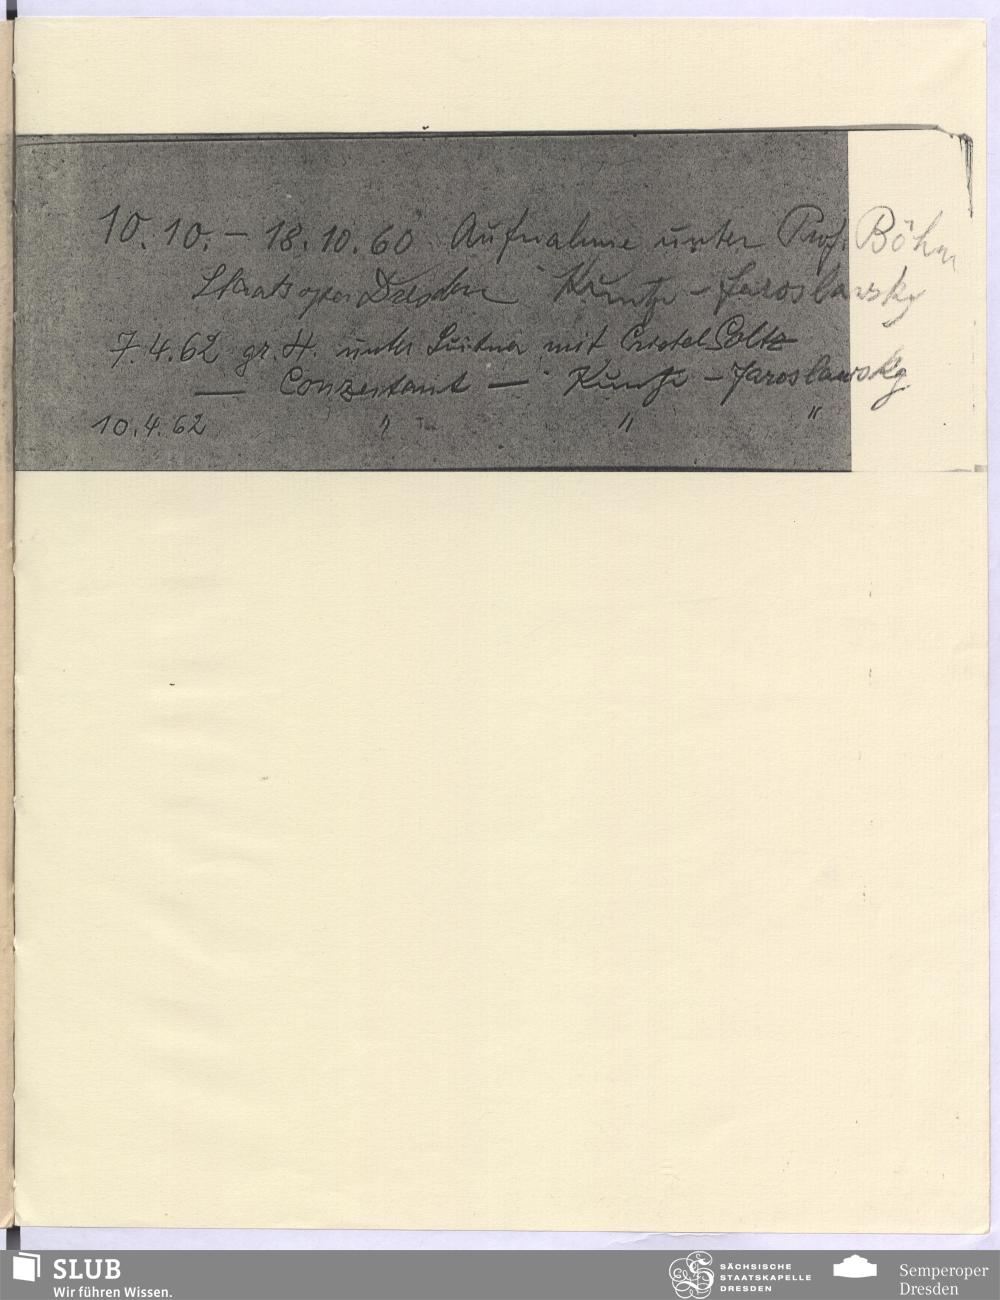 10.10. – 18.10.60 Aufnahme unter Prof. Böhm
Staatsoper Dresden Kuntze – Jaroslawsky
7.4.62 gr. H. unter Suitner mit Cristel Goltz
— Conzertant — Kuntze – Jaroslawsky
10.4.62 " " "
SLUB
Wir führen Wissen.
SÄCHSISCHE
STAATSKAPELLE
DRESDEN
Semperoper
Dresden